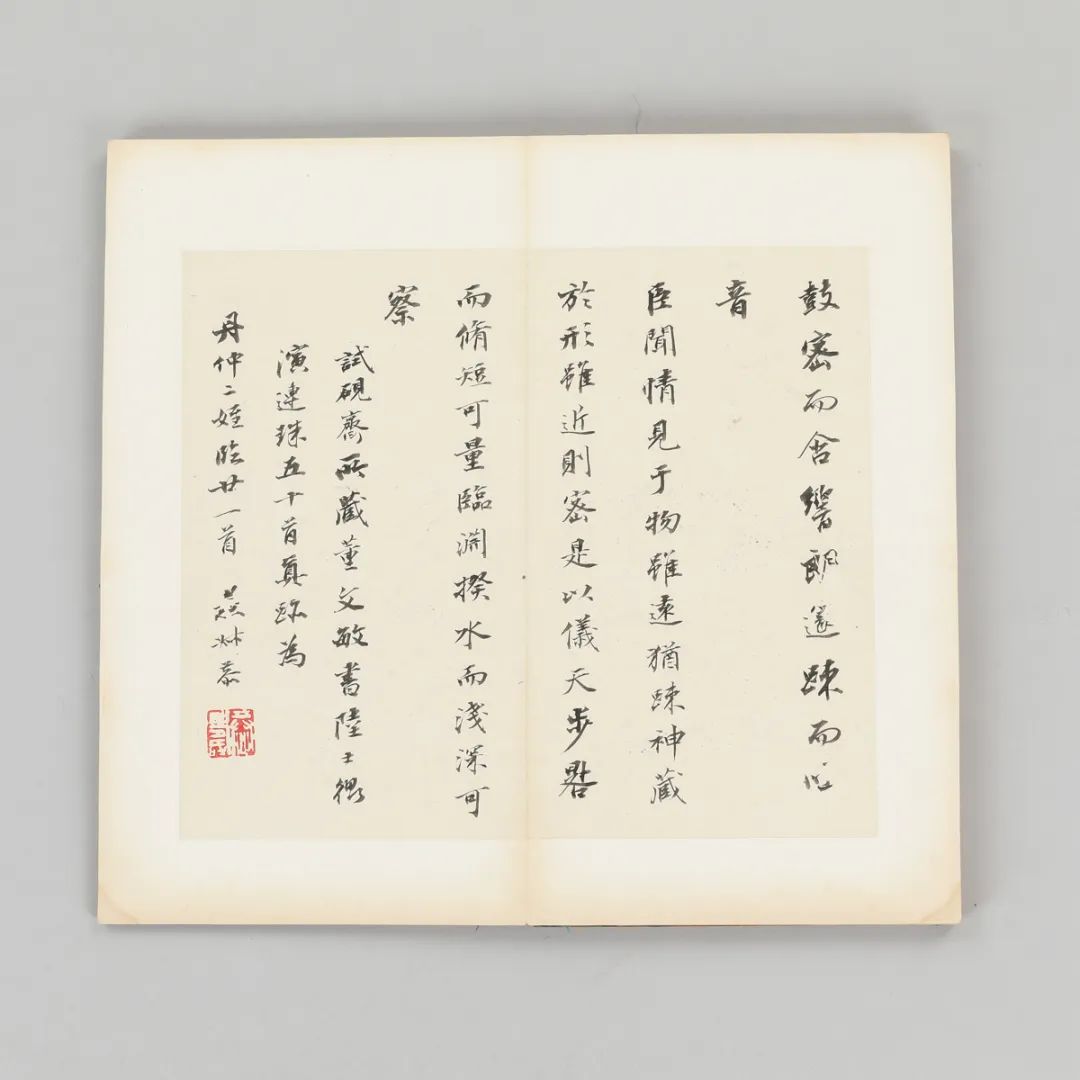 鼓密而含響朗邃疎而吐
音
臣聞情見于物雖遠猶疎神藏
於形雖近則密是以儀天步晷
而脩短可量臨淵揆水而淺深可
察
試硯齋所藏董文敏書陸士衡
演連珠五十首真跡為
丹仲二姪臨廿一首